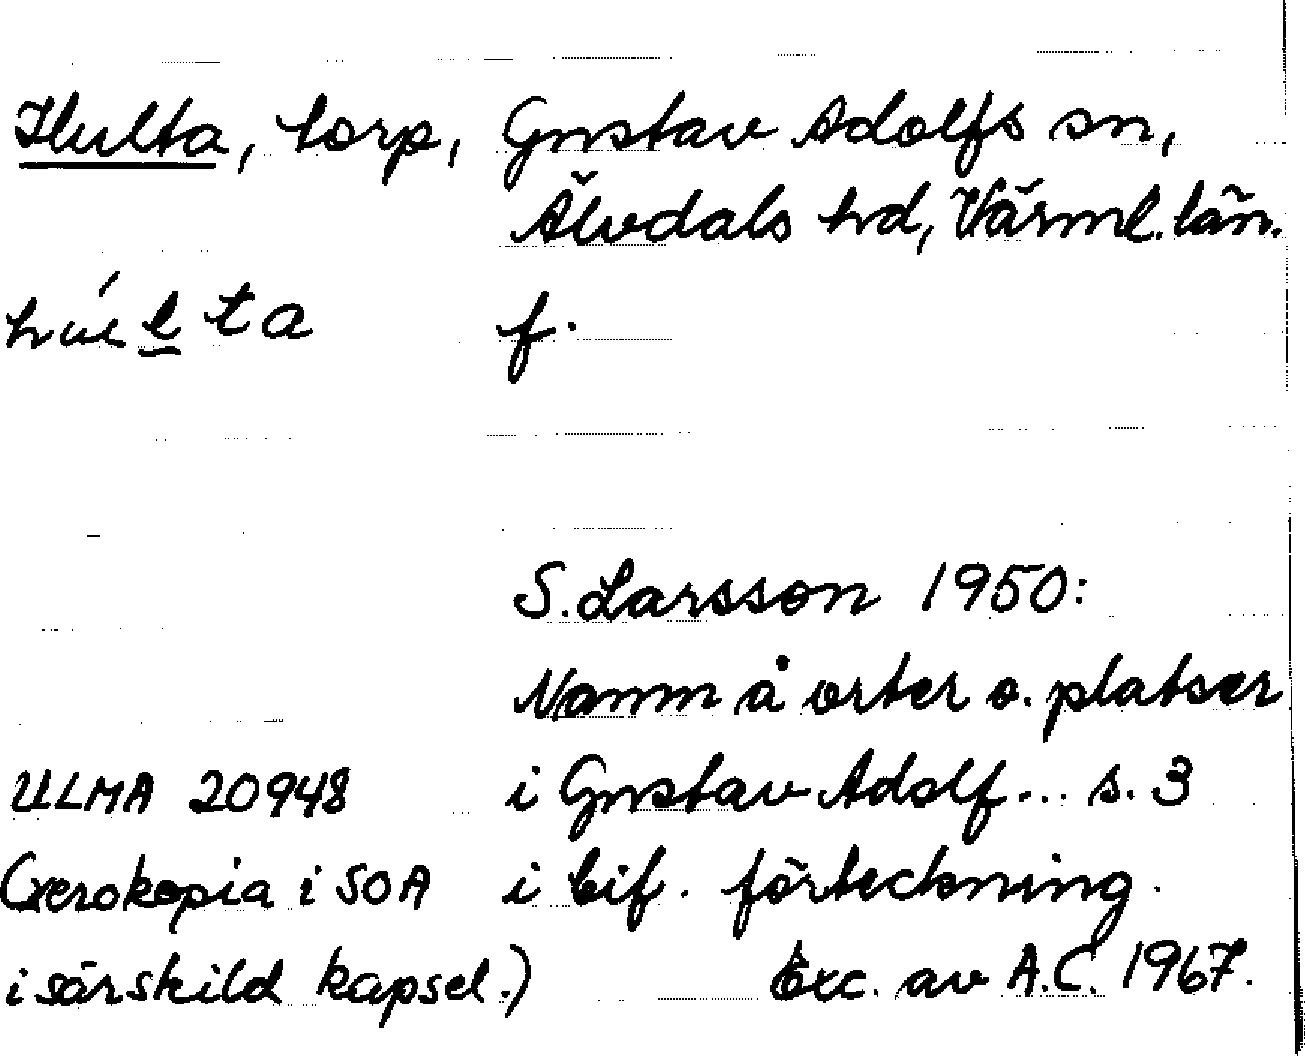 Hulta, torp, Gustav Adolfs sn,
Älvdals hd, Värml. län.
f.
S. Larsson 1950:
Namn å orter o. platser
ULMA 20948 i Gustav Adolf... s. 3
(xerokopia i SOA i bif. förteckning.
i särskild kapsel.) Exc. av A.C. 1967.